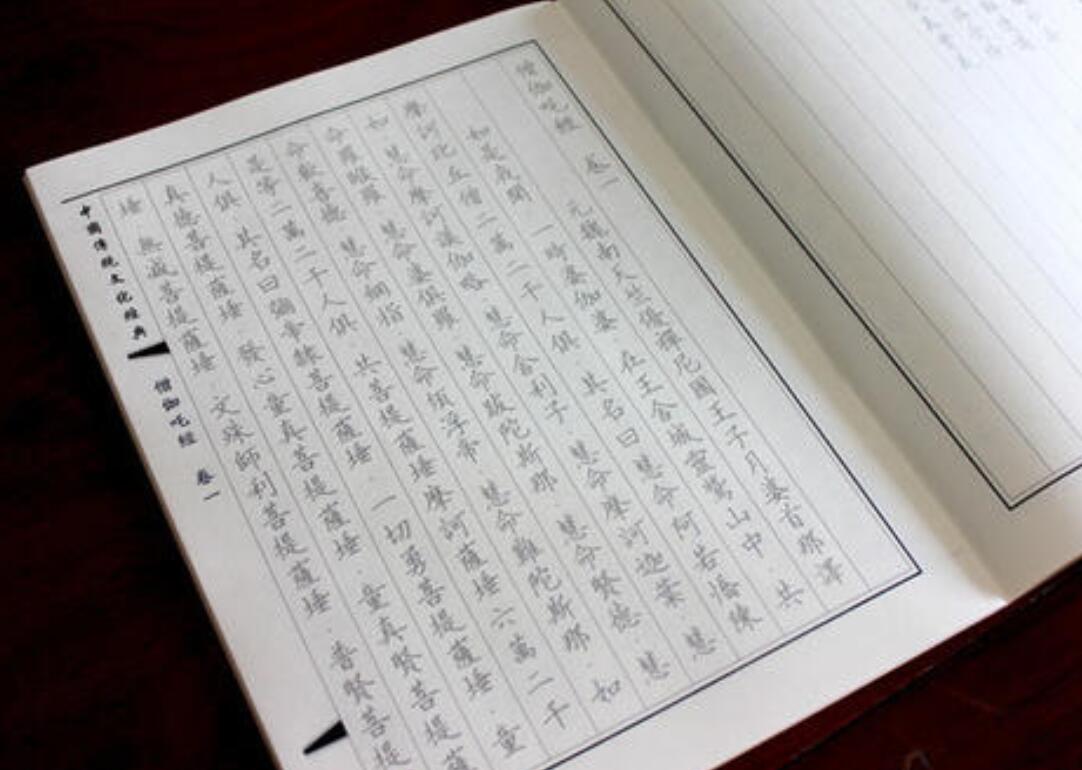 僧伽吒經 卷一
元魏南天竺優禪尼國王子月婆首那譯
如是我聞 一時婆伽婆·在王舍城靈鷲山中·共
摩訶比丘僧二萬二千人俱·其名曰慧命阿若憍陳
如·慧命摩訶謨伽略·慧命舍利子·慧命摩訶迦葉·慧
命羅睺羅·慧命婆俱羅·慧命跋陀斯那·慧命賢德·慧
命歡喜德·慧命網指·慧命須浮帝·慧命難陀斯那·如
是等二萬二千人俱·共菩提薩埵摩訶薩埵六萬二千
人俱·其名曰彌帝隸菩提薩埵·一切勇菩提薩埵·童
真德菩提薩埵·發心童真菩提薩埵·童真賢菩提薩
埵·無減菩提薩埵·文殊師利菩提薩埵·普賢菩提
中國傳統文化經典
僧伽吒經 卷一